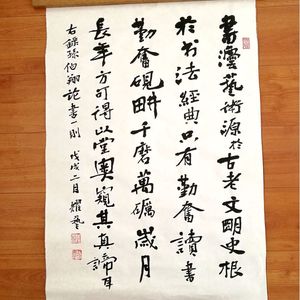 書灋藝術源於古老文明史根
於书法經典只有勤奮讀書
勤奮硯畊千磨萬礪歲月
長年方可得以堂奧窺其真諦耳
右錄孫伯翔論書一則 戊戌二月 耀